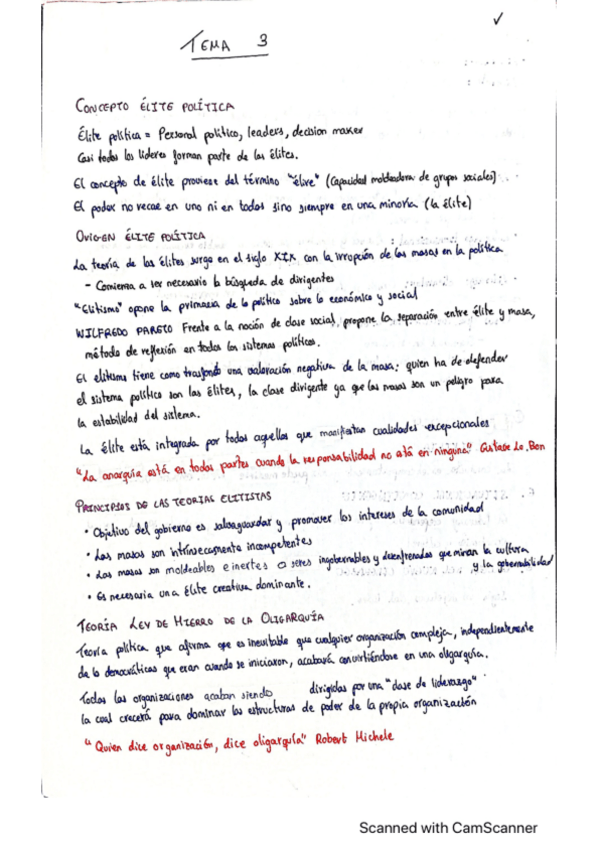 ✓
TEMA 3
CONCEPTO ÉLITE POLÍTICA
Élite política = Personal político, leaders, decision maker
Casi todos los líderes forman parte de las élites.
El concepto de élite proviene del término "élire" (capacidad moldeadora de grupos sociales)
El poder no recae en uno ni en todos sino siempre en una minoría (la élite)
ORIGEN ÉLITE POLÍTICA
La teoría de las élites surge en el siglo XIX con la irrupción de las masas en la política
- Comienza a ser necesario la búsqueda de dirigentes
"Elitismo" opone la primacía de lo político sobre lo económico y social
WILFREDO PARETO Frente a la noción de clase social, propone la separación entre élite y masa,
método de reflexión en todos los sistemas políticos.
El elitismo tiene como trasfondo una valoración negativa de la masa: quien ha de defender
el sistema político son las élites, la clase dirigente ya que las masas son un peligro para
la estabilidad del sistema.
La élite está integrada por todos aquellos que manifiestan cualidades excepcionales
"La anarquía está en todas partes cuando la responsabilidad no está en ninguna" Gustave Le Bon
PRINCIPIOS DE LAS TEORÍAS ELITISTAS
• Objetivo del gobierno es salvaguardar y promover los intereses de la comunidad
• Las masas son intrínsecamente incompetentes
• Las masas son moldeables e inertes o seres ingobernables y desenfrenados que minan la cultura
y la gobernabilidad
• Es necesaria una élite creativa dominante.
TEORÍA LEY DE HIERRO DE LA OLIGARQUÍA
Teoría política que afirma que es inevitable que cualquier organización compleja, independientemente
de lo democráticas que eran cuando se iniciaron, acabará convirtiéndose en una oligarquía.
Todas las organizaciones acaban siendo dirigidas por una "clase de liderazgo"
la cual crecerá para dominar las estructuras de poder de la propia organización
"Quien dice organización, dice oligarquía" Robert Michele
Scanned with CamScanner